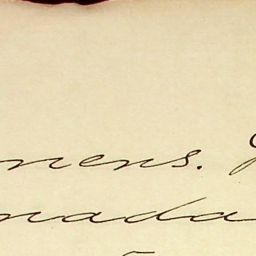 mens.
nada